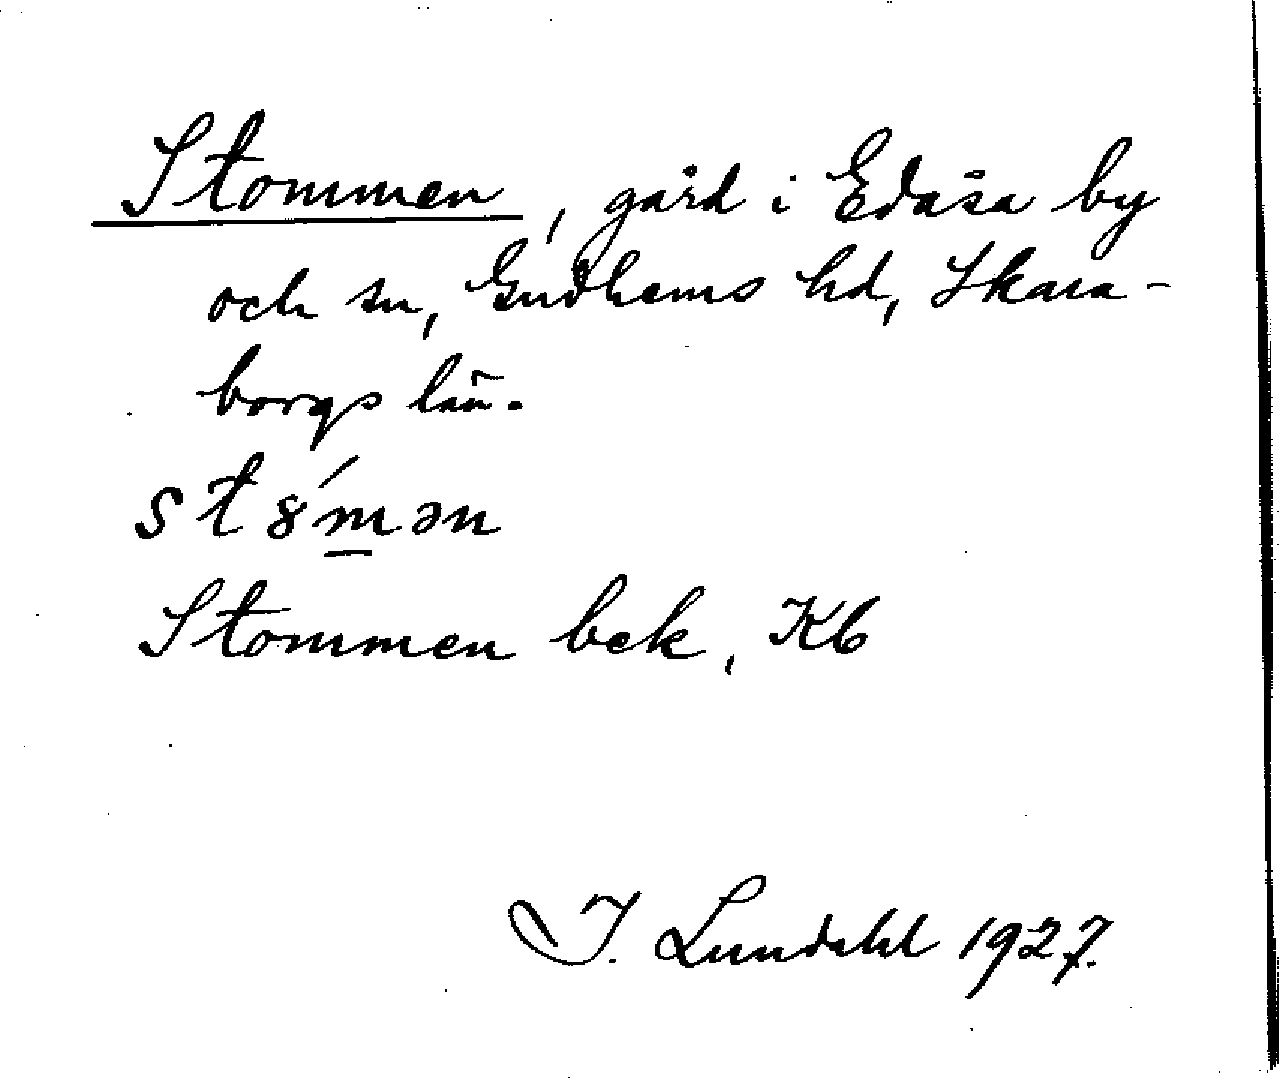 Stommen, gård i Edåsa by
och sn, Gudhems hd, Skara-
borgs län.
st8́mən
Stommen bek, Kb
I. Lundahl 1927.